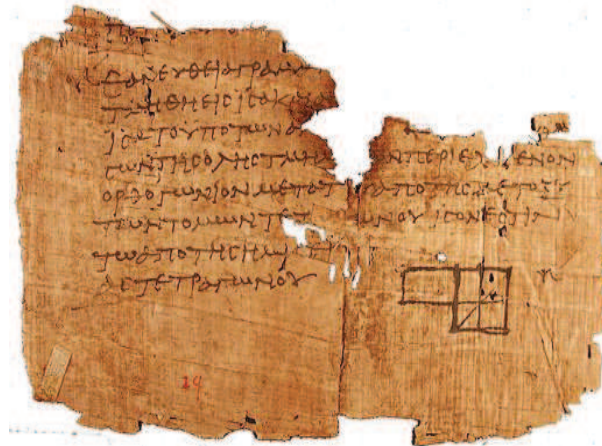 ΕΑΝ ΕΥΘΕΙΑ ΓΡΑΜΜ
ΤΜΗΘΗ ΕΙϹ ΙϹΑ Κ
ΙϹΑ ΤΟ ΥΠΟ ΤΩΝ Α
ϹΩΝ ΤΗϹ ΟΛΗϹ ΤΜΗ ΩΝ ΠΕΡΙΕΧΟΜΕΝΟΝ
ΟΡΘΟΓΩΝΙΟΝ ΜΕΤΑ Τ ΑΠΟ ΤΗϹ ΜΕΤΟΞΥ
ΤΩΝ ΤΟΜΩΝ ΤΕΤ ΩΝΟΥ ΙϹΟΝ ΕϹΤΙΝ
ΤΩ ΑΠΟ ΤΗϹ ΗΜΙϹ
ΑϹ ΤΕΤΡΑΓΩΝΟΥ